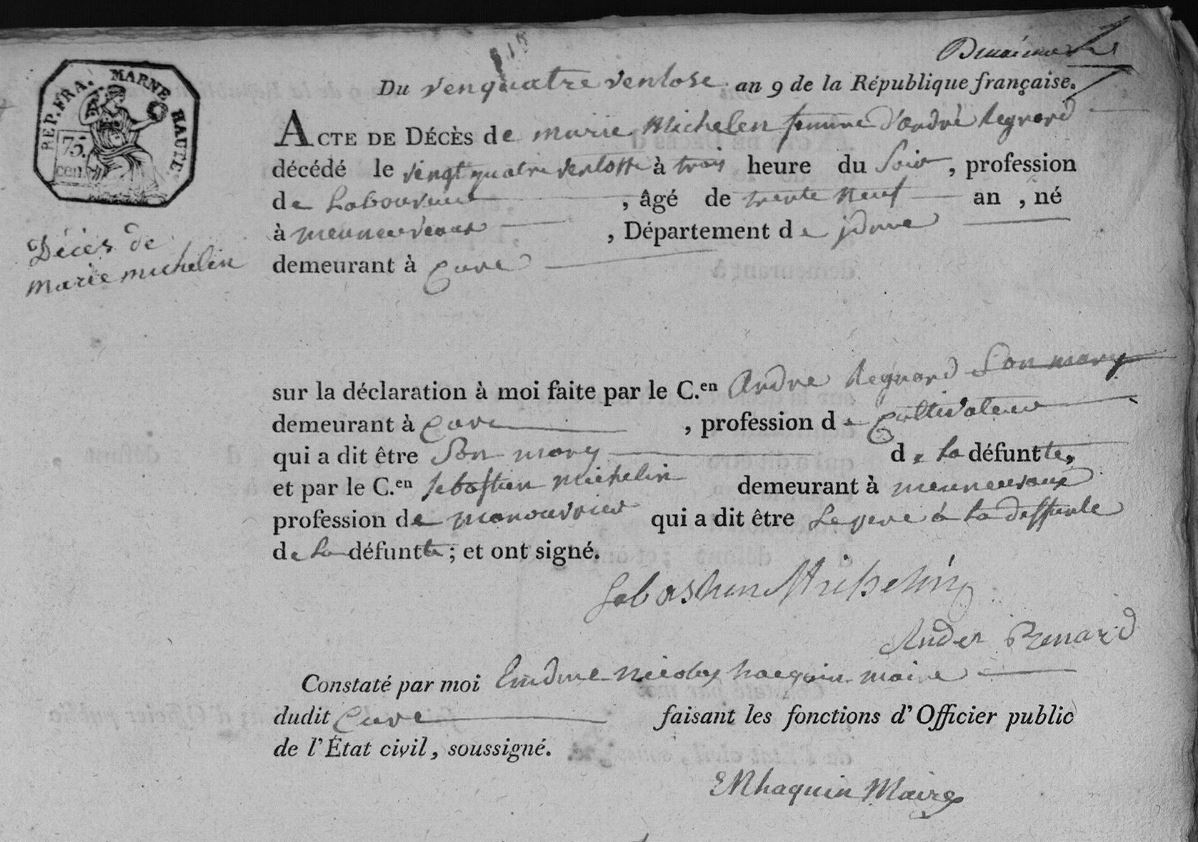 REP. FRA. MARNE HAUTE.
75. cen.
Du venquatre venlose an 9 de la République française.
ACTE DE DÉCÈS de marie Michelen femme d'andré Regnard
décédé le vingt quatre venlosse à trois heure du Soir, profession
de Laboureur, âgé de trente neuf an, né
à menneveaux, Département d
demeurant à Cuve
Décès de
marie michelin
sur la déclaration à moi faite par le C.en Andre Regnard Son mary
demeurant à Cuve, profession de Cultivateur
qui a dit être Son mary de la défuntte,
et par le C.en Sebastien Michelin demeurant à menneveaux
profession de manouvrier qui a dit être Le pere à la deffunte
de la défuntte; et ont signé.
Sebasthen Michelin
Ander Renard
Constaté par moi Emdme nicolas haequin maire
dudit Cuve faisant les fonctions d'Officier public
de l'État civil, soussigné.
ENhaquin Maire